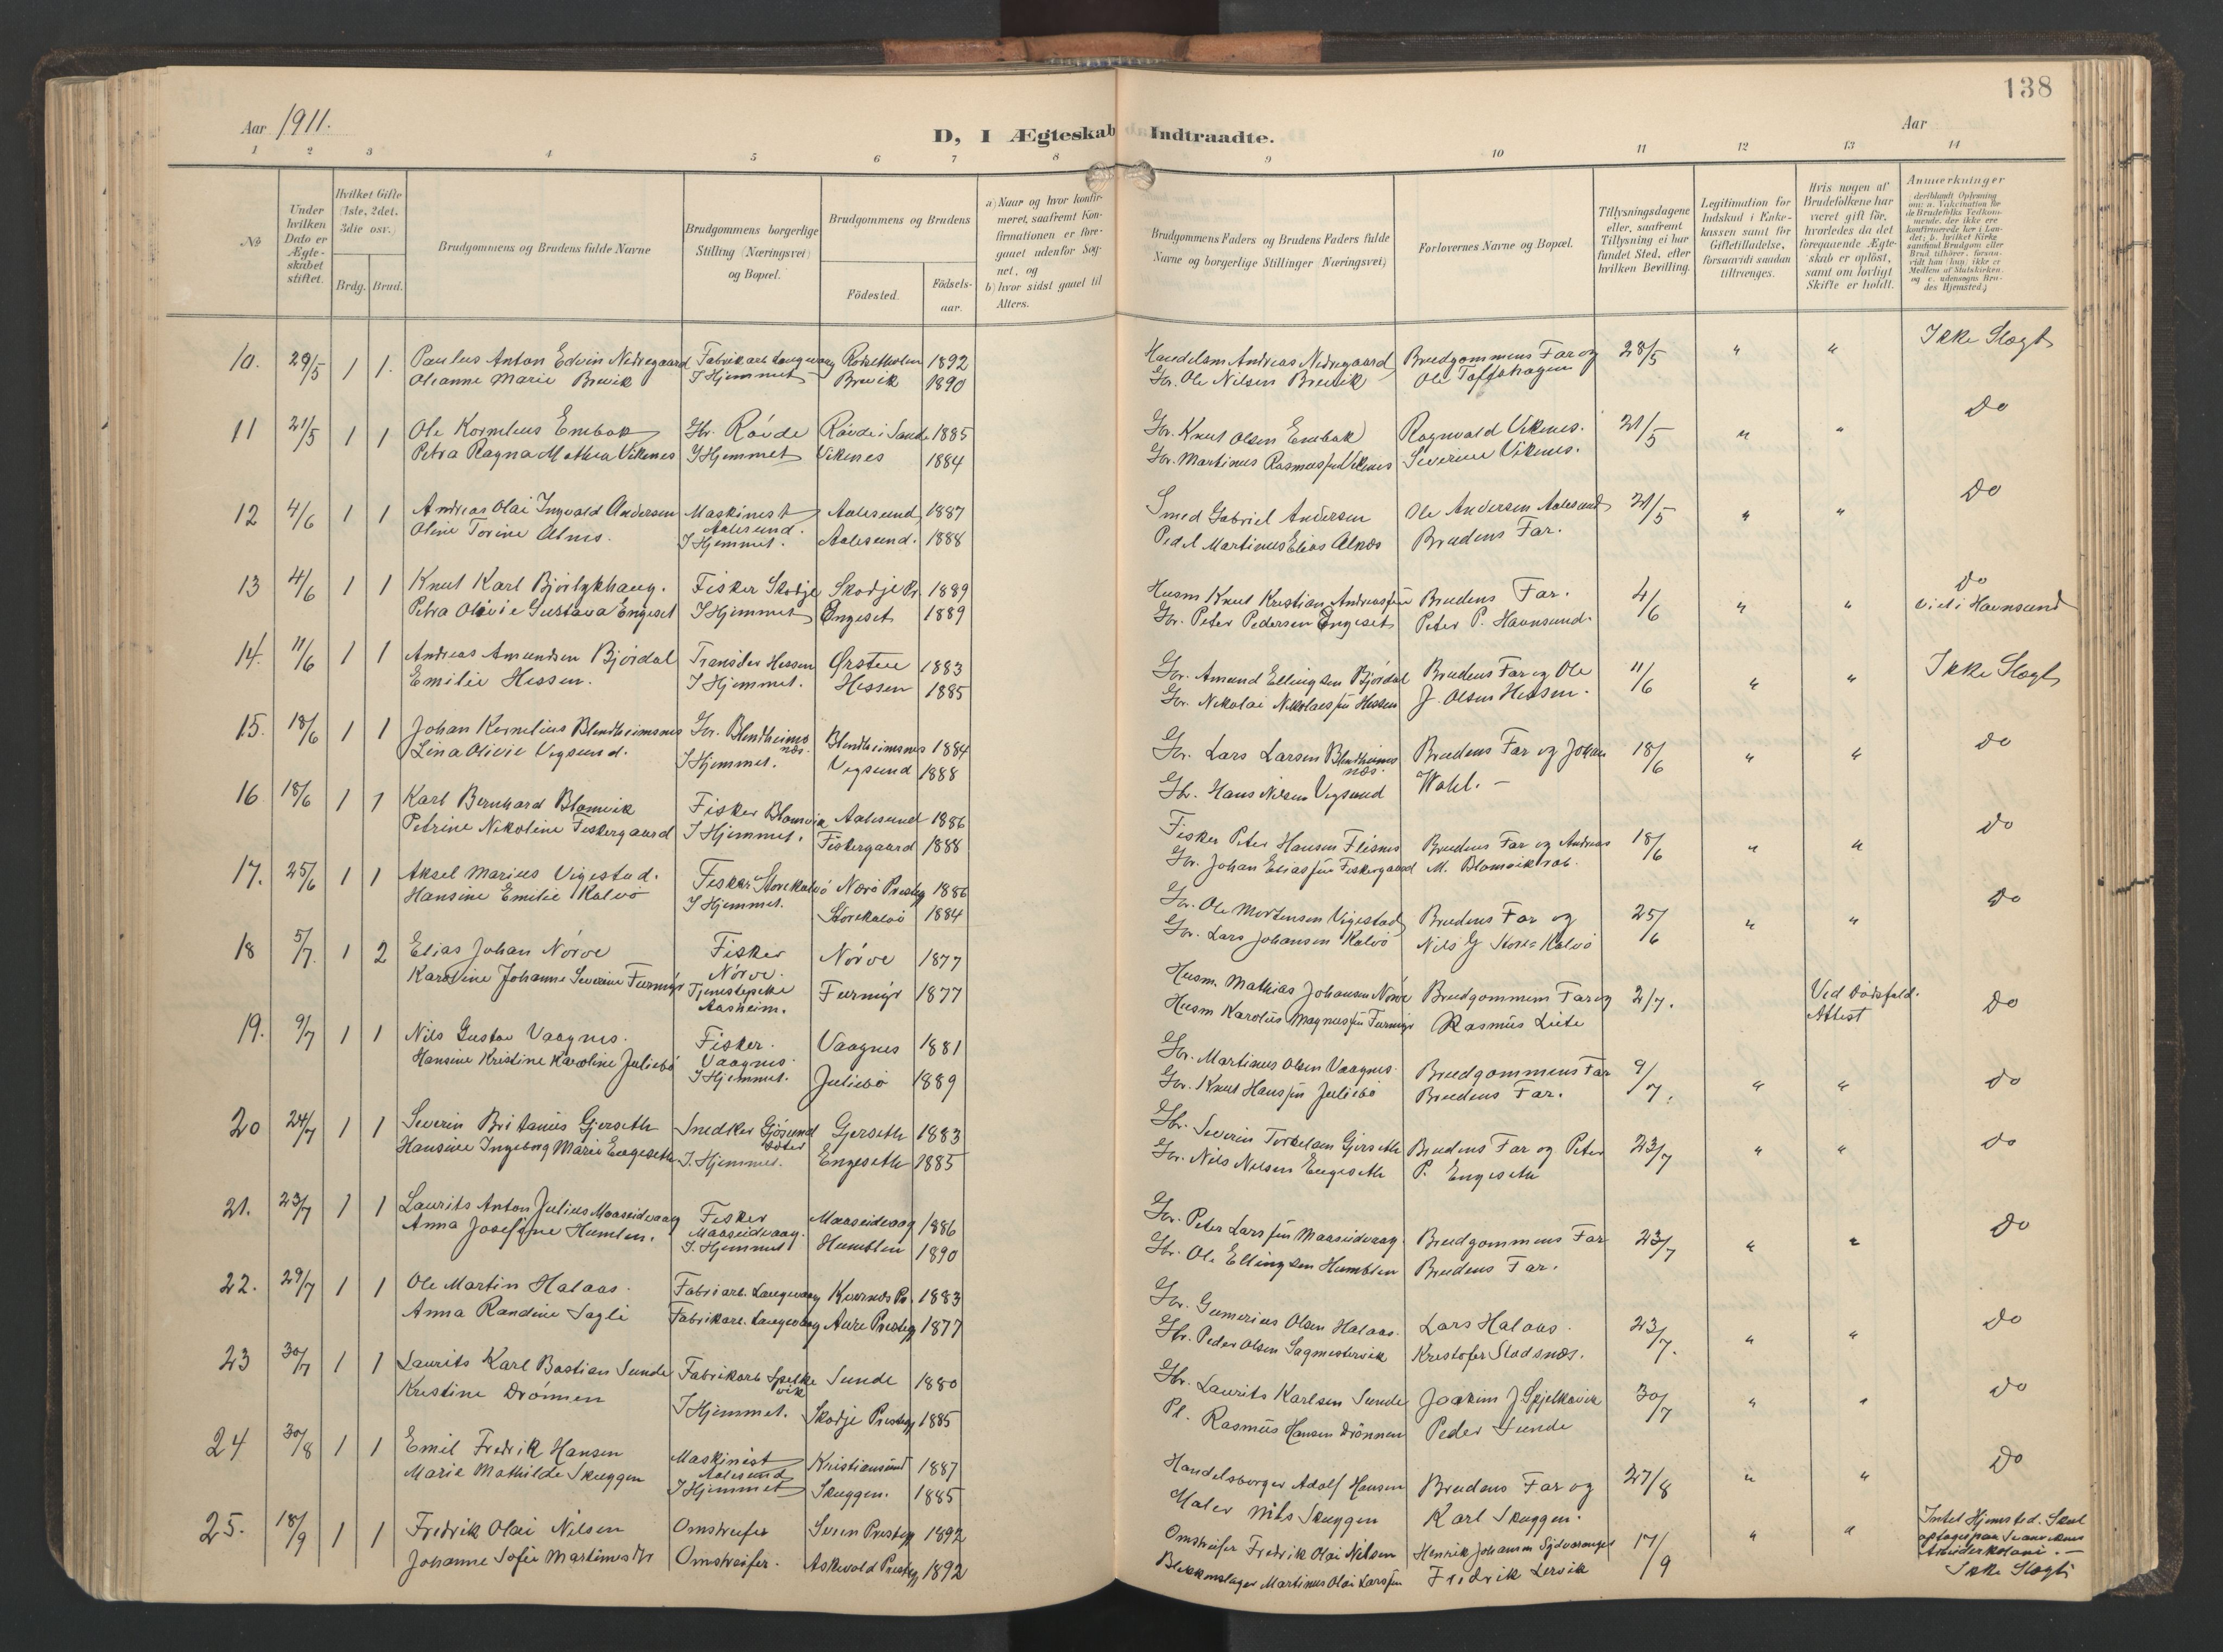 138
Aar 1911.
D, I Ægteskab Indtraadte.
Aar
1 2 3 4 5 6 7 8 9 10 11 12 13 14
No
Under hvilken Dato er Ægteskabet stiftet.
Hvilket Gifte (1ste, 2det, 3die osv.)
Brdg. Brud.
Brudgommens og Brudens fulde Navne
Brudgommens borgerlige Stilling (Næringsvei) og Bopæl.
Brudgommens og Brudens
Födested.
Födselsaar.
a) Naar og hvor konfirmeret, saafremt Konfirmationen er foregaaet udenfor Sognet, og
b) hvor sidst gaaet til Alters.
Brudgommens Faders og Brudens Faders fulde Navne og borgerlige Stillinger (Næringsvei)
Forlovernes Navne og Bopæl.
Tillysningsdagene eller, saafremt Tillysning ei har fundet Sted, efter hvilken Bevilling.
Legitimation for Indskud i Enkekassen samt for Giftetilladelse, forsaavidt saadan tiltrænges.
Hvis nogen af Brudefolkene har været gift för, hvorledes da det foregaaende Ægteskab er oplöst, samt om lovligt Skifte er holdt.
Anmerkninger
10. 29/5 1 1. Paulus Anton Edvin Nedregaard Fabrikarb Langevaag 1892 Handelsm Andreas Nedregaard Brudgommens Far og 28/5 " " Ikke Slægt
Olianne Marie Brevik I Hjemmet Brevik 1890 Gr. Ole Nilsen Brevik Ole
11 21/5 1 1 Ole Kornelius Embak Gbr. Røvde Røvde i Sande 1885 Gr. Knut Olsen Embak Ragnvald Vikenes. 21/5 " " Do
Petra Ragna Mathea Vikenes I Hjemmet Vikenes 1884 Gr. Martinus Rasmussen Vikenes Severine Vikenes.
12 4/6 1 1 Andreas Olai Ingvald Andersen Maskinist Aalesund. Aalesund 1887 Smed Gabriel Andersen Ole Andersen Aalesund 21/5 " " Do
Oline Torine Alnes. I Hjemmet. Aalesund. 1888 Pedel Martinus Elias Alnæs Brudens Far.
13 4/6 1 1 Knut Karl Bjørlykhaug. Fisker Skodje Skodje Pr 1889 Husm Knut Kristian Andreassen Brudens Far. 4/6 " " Do
Petra Olivie Gustava Engeset I Hjemmet Engeset 1889 Gr. Peter Pedersen Engeset Peter P. Havnsund. Viet i Havnsund
14. 11/6 1 1 Andreas Amundsen Bjørdal Hessen Ørsten 1883 Gr. Amund Ellingsen Bjørdal Brudens Far og Ole 11/6 " " Ikke Slægt
Emilie Hessen. I Hjemmet. Hessen 1885 Gr. Nikolai Nikolaisen Hessen J. Olsen Hessen.
15. 18/6 1 1 Johan Kornelius Blendheimsnes Gr. Blendheimsnæs. Blindheimsnes 1884 Gr. Lars Larsen Blindheimsnæs. Brudens Far og Johan 18/6 " " Do
Lina Olivie Vegsund. I Hjemmet. Vegsund 1888 Gbr. Hans Nilsen Vegsund Wahl. -
16 18/6 1 1 Karl Bernhard Blomvik Fisker Blomvik Aalesund 1886 Fisker Peter Hansen Flisnes Brudens Far og Andreas 18/6 " " Do
Petrine Nikoline Fiskergaard I Hjemmet. Fiskergaard 1888 Gr. Johan Eliassen Fiskergaard M.
17. 25/6 1 1 Aksel Marius Vigestad. Fisker Storekalvø Nærø Prestg 1886 Gr. Ole Mortensen Vigestad Brudens Far og 25/6 " " Do
Hansine Emilie Kalvø I Hjemmet. Storekalvø 1884 Gr. Lars Johansen Kalvø Nils G Store Kalvø
18 5/7. 1 2 Elias Johan Nørve Fisker Nørve. Nørve 1877 Husm. Mathias Johansen Nørve Brudgommens Far og 2/7. Ved Dødsfald. Attest Do
Karoline Johanne Severine Furmyr Tjenestepike Aasheim. Furmyr 1877 Husm Karolus Magnussen Furmyr Rasmus Liete
19. 9/7 1 1 Nils Gustav Vaagnes. Fisker. Vaagnes. Vaagnes 1881 Gr. Martinus Olsen Vaagnes. Brudgommens Far 9/7. " " Do
Hansine Kristine Karoline Juliebø I Hjemmet. Juliebø 1889 Gr. Knut Hanssen Juliebø Brudens Far.
20 24/7 1 1 Severin Britanius Gjerseth Snedker Gjøsund Gjerseth 1883 Gbr. Severin Torkelsen Gjerseth Brudens Far og Peter 23/7 " " Do
Hansine Ingeborg Marie Engeseth I. Hjemmet. Engeseth 1885 Gr. Nils Nilsen Engeseth P. Engeseth
21. 23/7 1 1 Laurits Anton Julius Maaseidvaag Fisker Maaseidvaag. Maaseidvaag 1886 Gr. Peter Larssen Maaseidvaag. Brudgommens Far 23/7 " " Do
Anna Josefine Humlen. I. Hjemmet Humblen 1890 Gbr. Ole Ellingsen Humblen Brudens Far.
22. 29/7 1 1 Ole Martin Halaas. Fabriarb. Langevaag Kvernes Pr. 1883 Gr. Gumerius Olsen Halaas. Lars Halaas. 23/7. " " Do
Anna Randine Sagli Fabrikarb. Langevaag Aure Prestg 1877 Gbr. Peder Olsen Sagmestervik Kristofer Stadsnæs.
23 30/7 1 1 Laurits Karl Bastian Sunde Fabrikarb Spelkevik Sunde 1880 Gbr. Laurits Karlsen Sunde Joakim J. Spjelkavik 30/7 " " Do
Kristine Drønnen I Hjemmet. Skodje Prestg 1885 Pl. Rasmus Hansen Drønnen Peder Sunde
24 30/8 1 1 Emil Fredrik Hansen Maskinist Aalesund Kristiansund 1887 Handelsborger Adolf Hansen Brudens Far og 27/8 " " Do
Marie Mathilde Skuggen I Hjemmet Skuggen. 1885 Maler Nils Skuggen Karl Skuggen.
25. 18/9 1 1 Fredrik Olai Nilsen Omstreifer Prestg 1892 Omstreifer Fredrik Olai Nilsen Henrik Johansen Sydvaranger 17/9 " " Intet Hjemsted. Skal optages paa Arbeiderkoloni. -
Johanne Sofie Martinusdtr Omstreifer. Askevold Prestg 1892 Blikkenslager Martinus Olai Larssen Fredrik Lervik Ikke Slægt